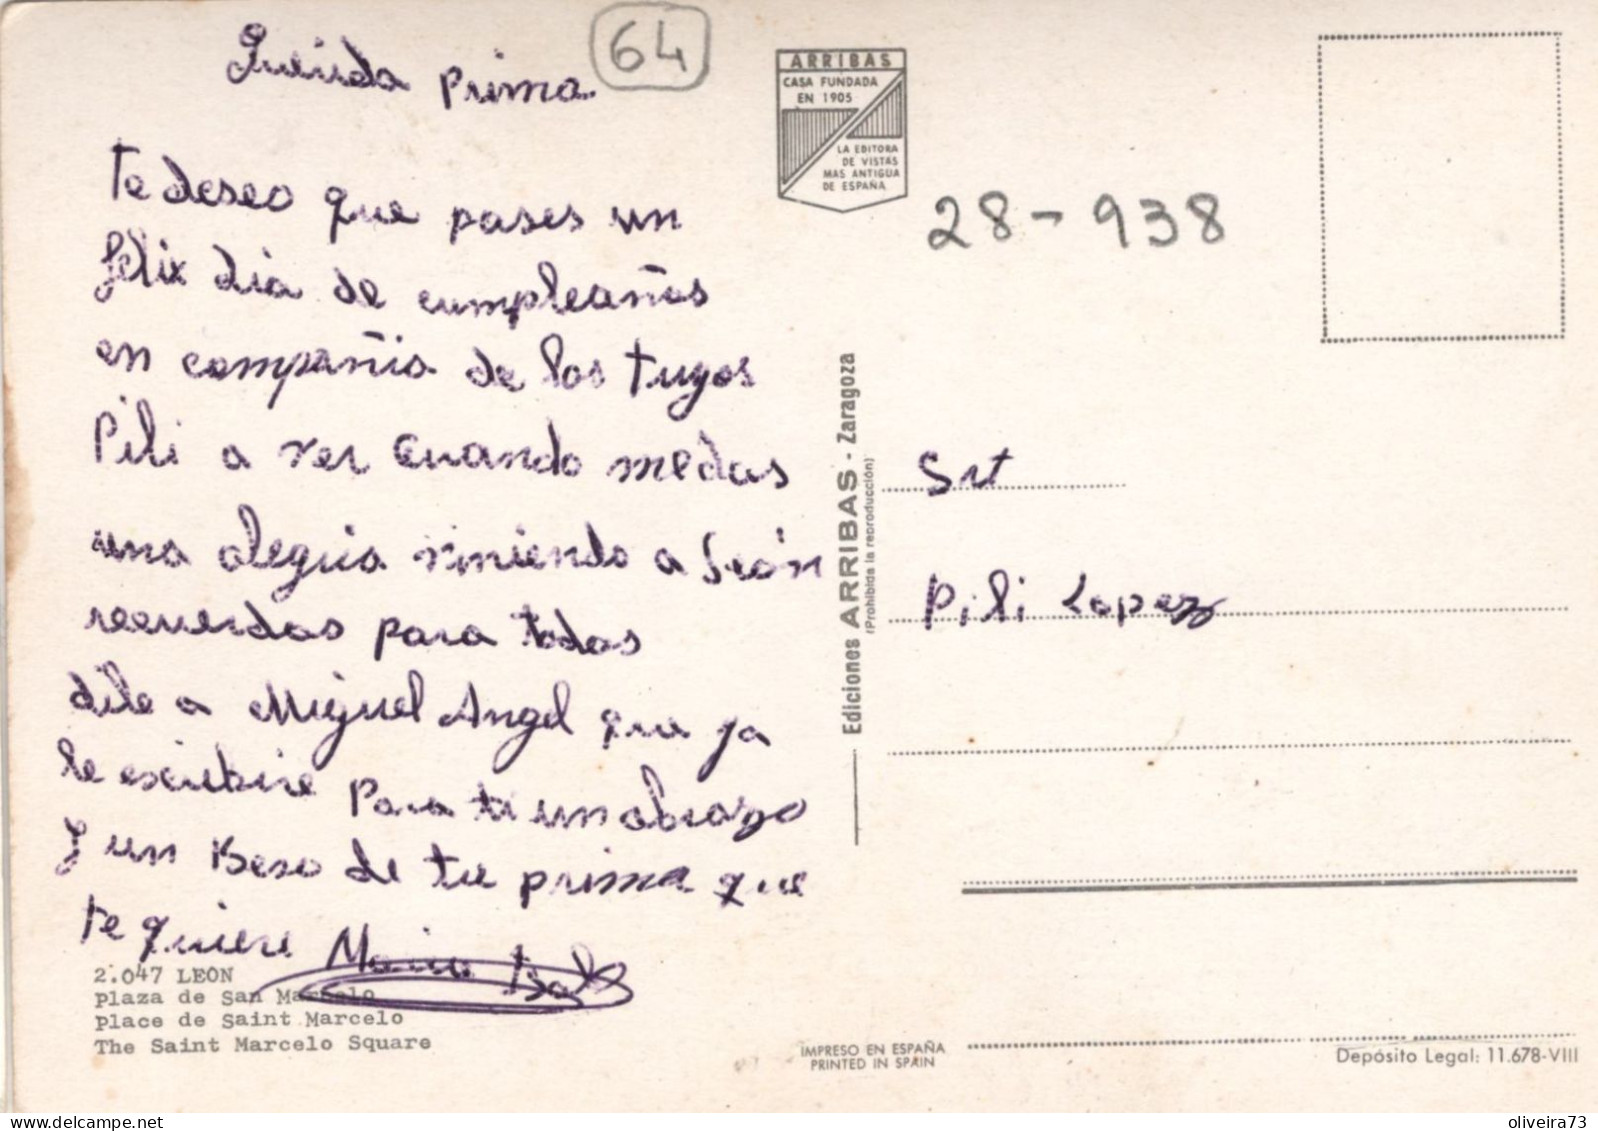 Querida prima
64
te deseo que pases un
felix dia de cumpleaños
en compañia de los tuyos
Pili a ver cuando me das
una alegria viniendo a León
recuerdos para todos
dile a Miguel Angel que ya
le escribire Para ti un abrazo
y un Beso de tu prima que
te quiere Maria
2.047 LEÓN
Plaza de San Marcelo
Place de Saint Marcelo
The Saint Marcelo Square
ARRIBAS
CASA FUNDADA
EN 1905
LA EDITORA
DE VISTAS
MAS ANTIGUA
DE ESPAÑA
28-938
Ediciones ARRIBAS - Zaragoza
(Prohibida la reproducción)
Srt
Pili Lopez
IMPRESO EN ESPAÑA
PRINTED IN SPAIN
Depósito Legal: 11.678-VIII
oliveira73